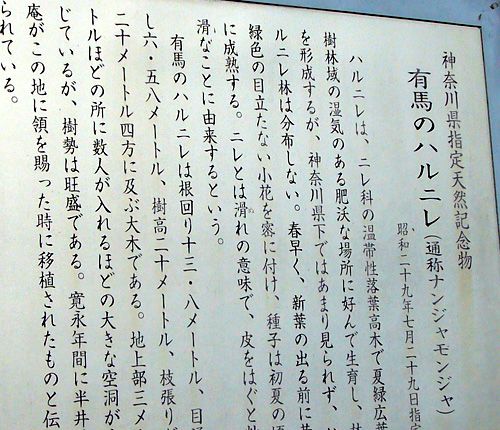 神奈川県指定天然記念物
有馬のハルニレ（通称ナンジャモンジャ）
昭和二十九年七月二十九日指定
ハルニレは、ニレ科の温帯性落葉高木で夏緑広葉
樹林域の湿気のある肥沃な場所に好んで生育し、
を形成するが、神奈川県下ではあまり見られず、
ルニレ林は分布しない。春早く、新葉の出る前に
緑色の目立たない小花を密に付け、種子は初夏の
に成熟する。ニレとは滑れの意味で、皮をはぐと
滑なことに由来するという。
有馬のハルニレは根回り十三・八メートル、目
し六・五八メートル、樹高二十メートル、枝張り
二十メートル四方に及ぶ大木である。地上部三メ
トルほどの所に数人が入れるほどの大きな空洞が
じているが、樹勢は旺盛である。寛永年間に半井
庵がこの地に領を賜った時に移植されたものと伝
られている。